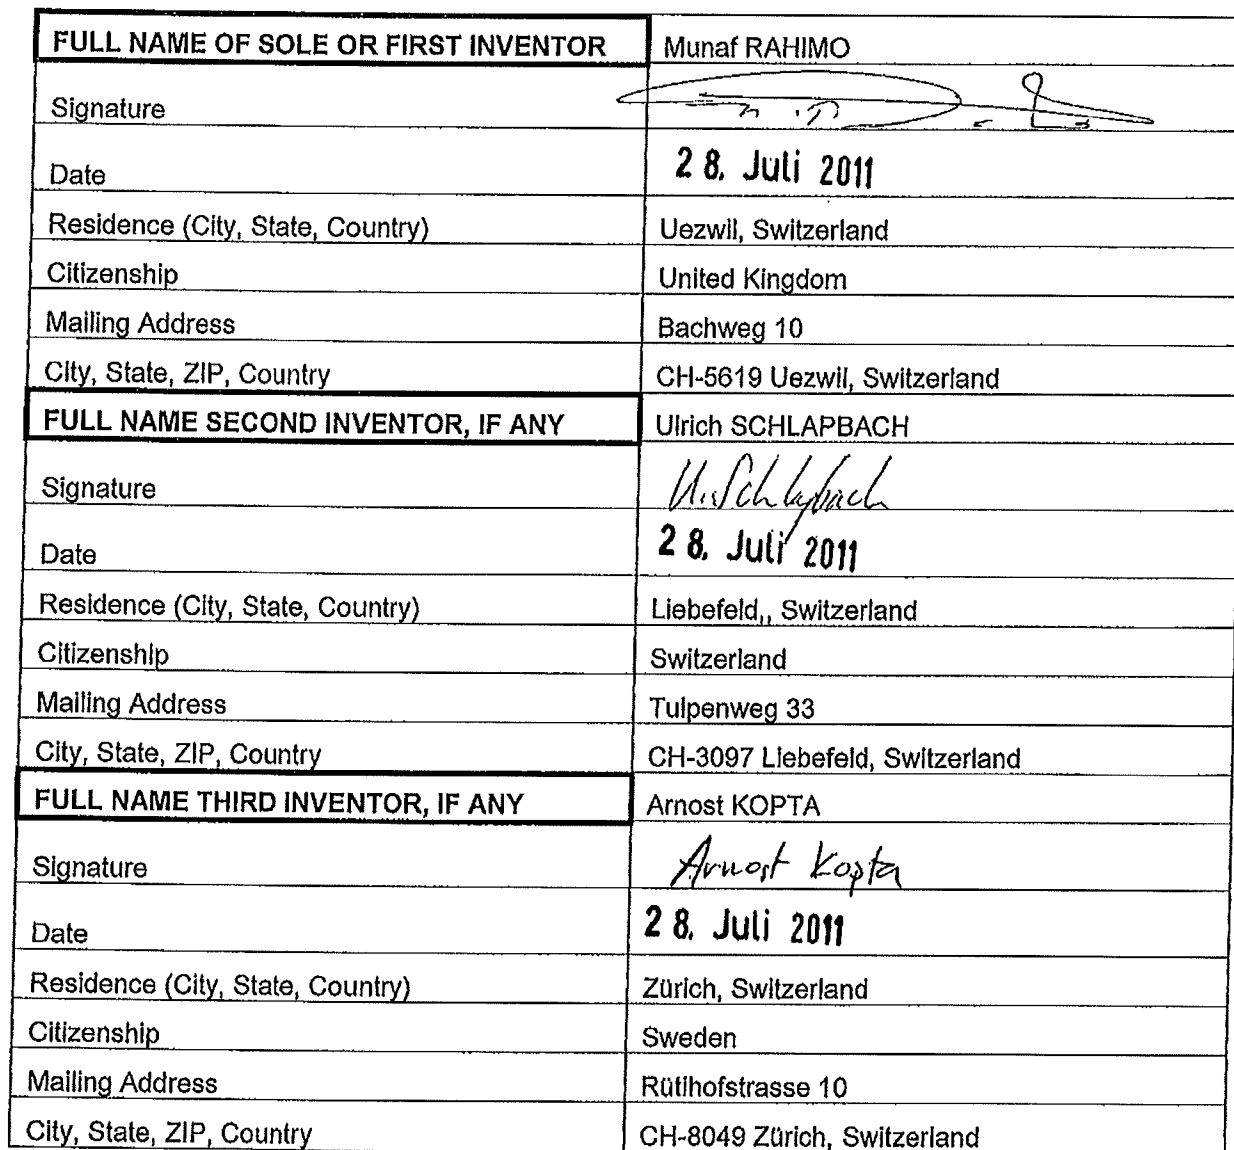 FULL NAME OF SOLE OR FIRST INVENTOR Munaf RAHIMO
Signature
Date 28. Juli 2011
Residence (City, State, Country) Uezwil, Switzerland
Citizenship United Kingdom
Mailing Address Bachweg 10
City, State, ZIP, Country CH-5619 Uezwil, Switzerland
FULL NAME SECOND INVENTOR, IF ANY Ulrich SCHLAPBACH
Signature U. Schlapbach
Date 28. Juli 2011
Residence (City, State, Country) Liebefeld,, Switzerland
Citizenship Switzerland
Mailing Address Tulpenweg 33
City, State, ZIP, Country CH-3097 Liebefeld, Switzerland
FULL NAME THIRD INVENTOR, IF ANY Arnost KOPTA
Signature Arnost Kopta
Date 28. Juli 2011
Residence (City, State, Country) Zürich, Switzerland
Citizenship Sweden
Mailing Address Rütihofstrasse 10
City, State, ZIP, Country CH-8049 Zürich, Switzerland